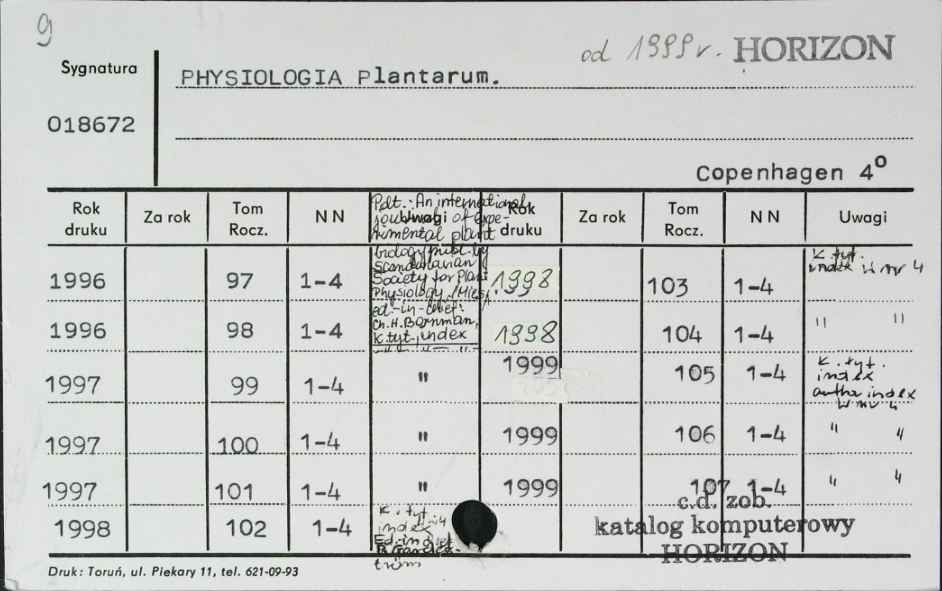 9
od 1999 r. HORIZON
Sygnatura
PHYSIOLOGIA Plantarum.
018672
Copenhagen 4º
Rok druku Za rok Tom Rocz. N N Uwagi Rok druku Za rok Tom Rocz. N N Uwagi
Pdt.: An international
journal of expe-
rimental plant
biology publ. by
Scandinavian
Society for Plant
Physiology
ed.-in-chief:
Ch. H. Bornman,
K. tyt., index
1996 97 1-4 1998 103 1-4 K. tyt. index w nr 4
1996 98 1-4 1998 104 1-4 " "
1997 99 1-4 " 1999 105 1-4 K. tyt.
index
index
w nr 4
1997 100 1-4 " 1999 106 1-4 " "
1997 101 1-4 " 1999 107 1-4 " "
1998 102 1-4 K. tyt
index
c.d. zob.
katalog komputerowy
HORIZON
Druk: Toruń, ul. Piekary 11, tel. 621-09-93